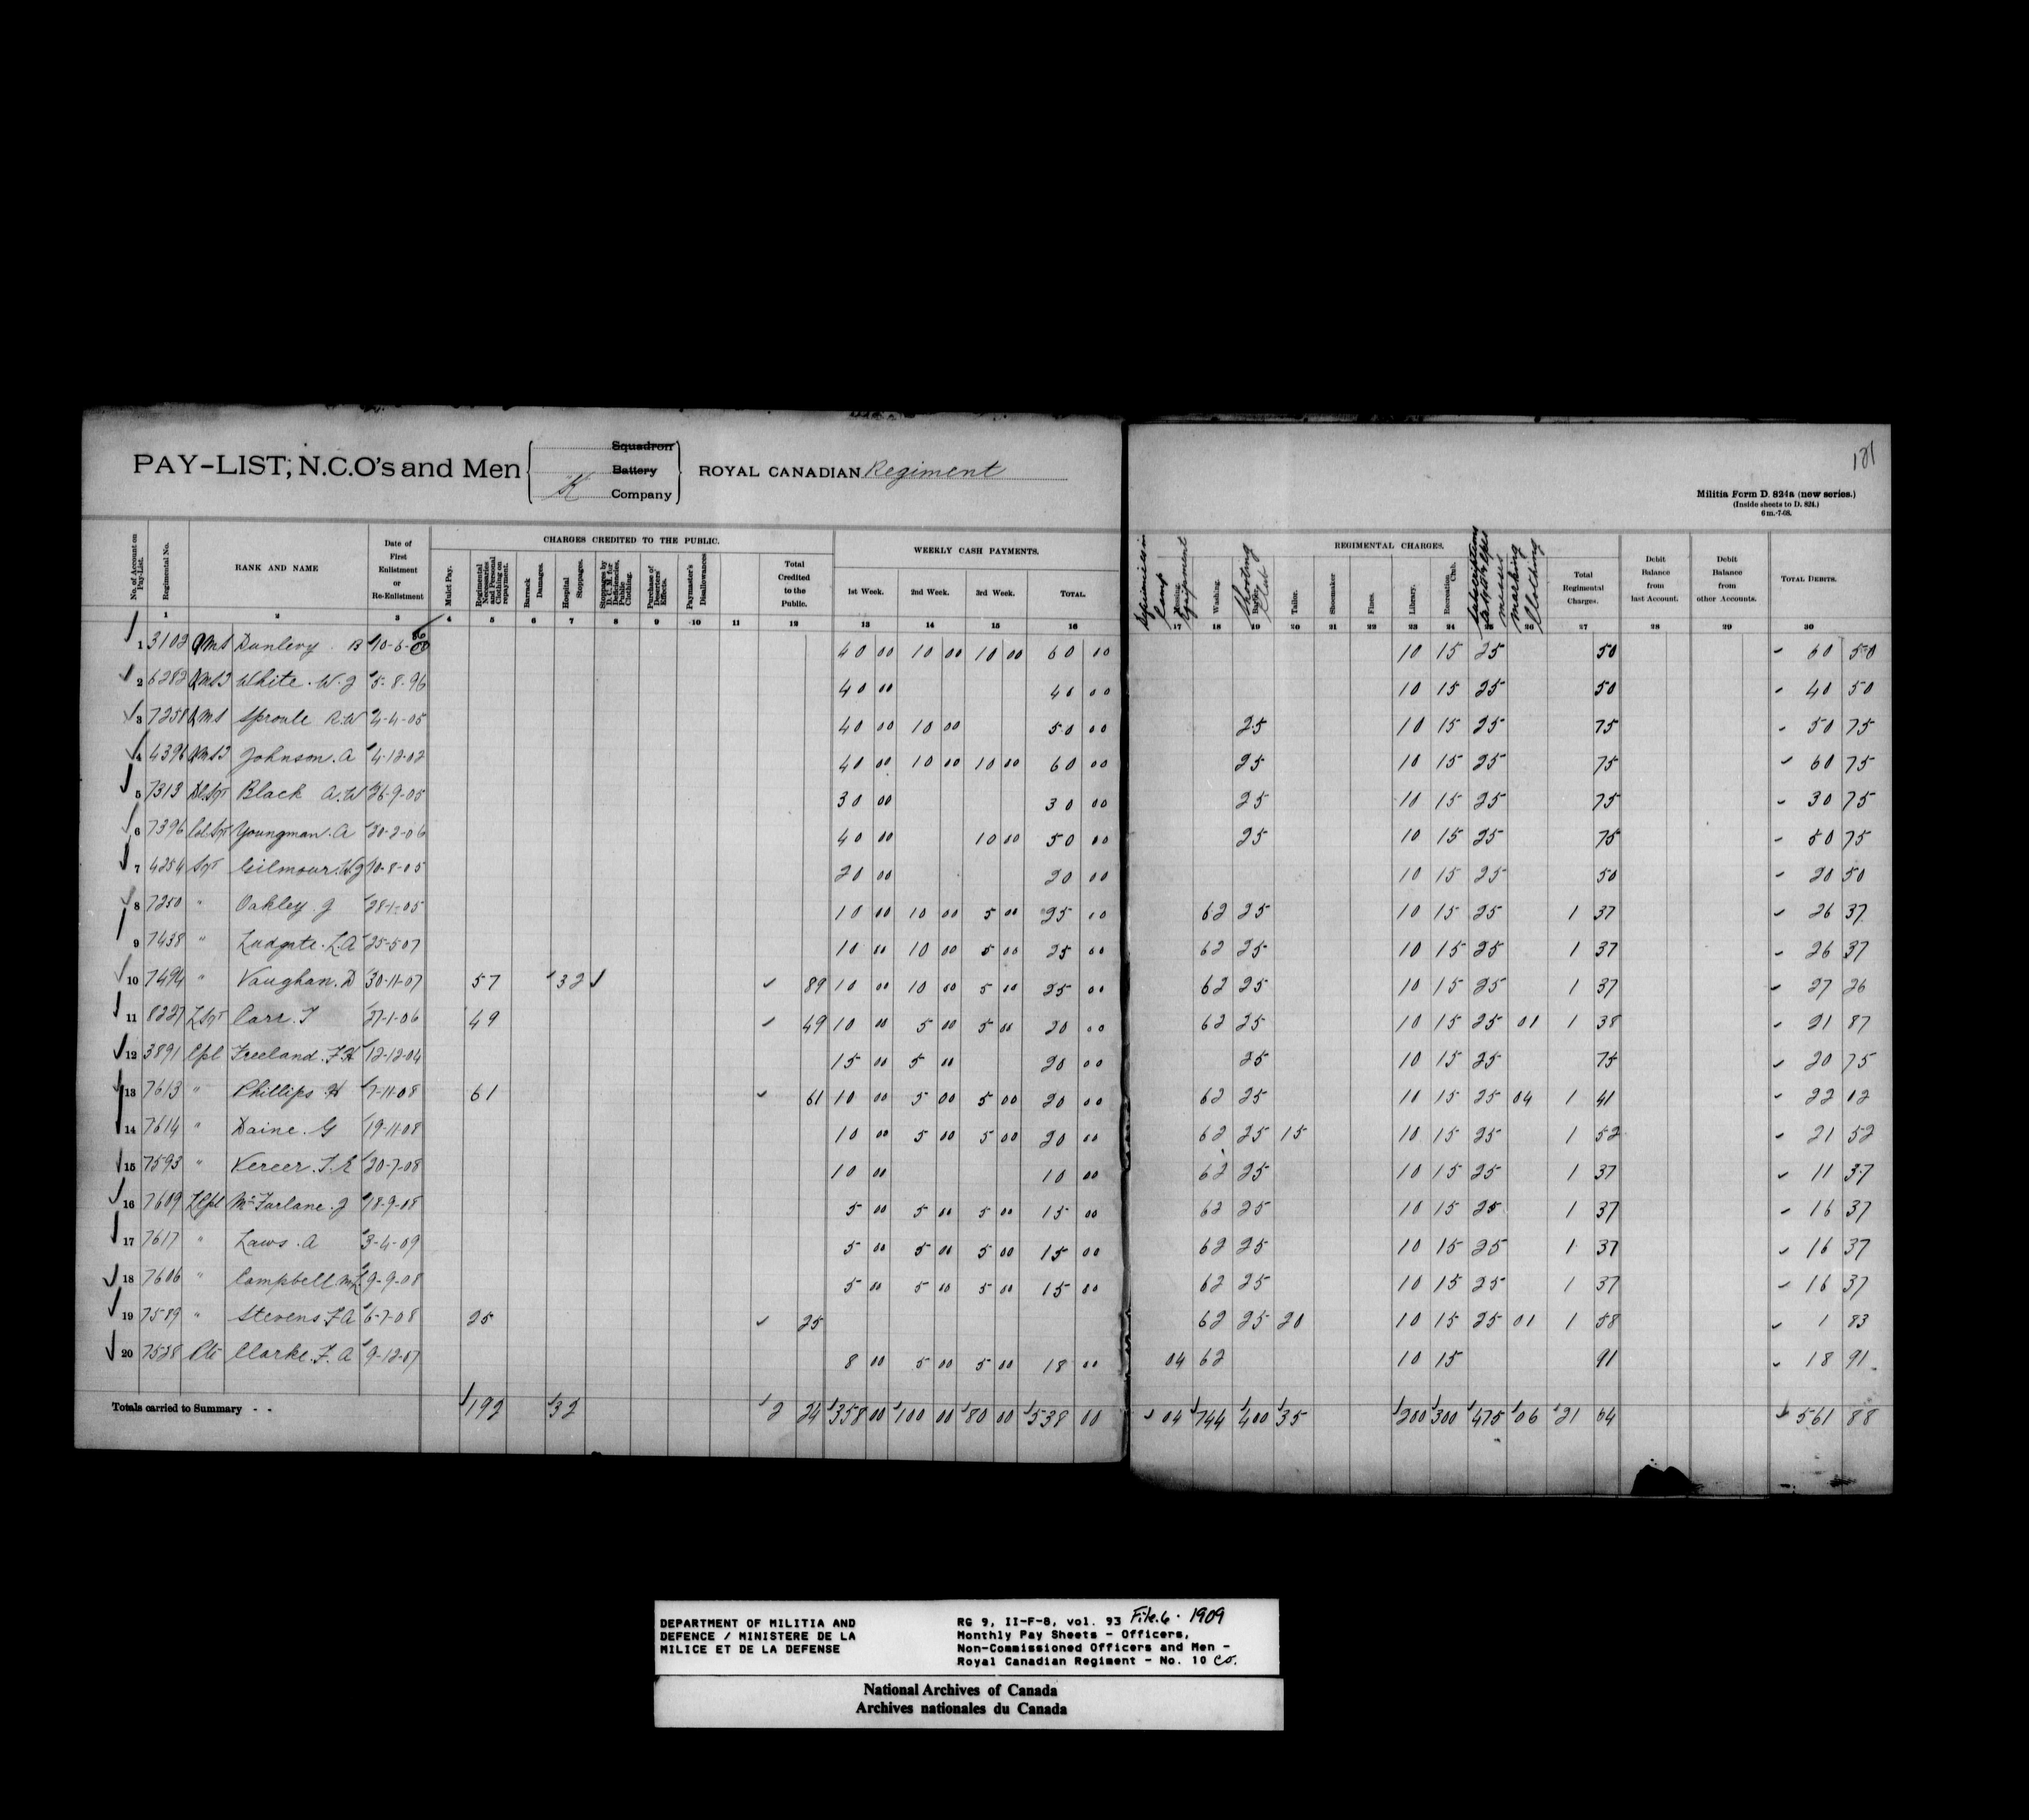 181
PAY-LIST; N.C.O's and Men
Squadron
Battery
K Company
ROYAL CANADIAN Regiment
Militia Form D. 824a (new series.)
(Inside sheets to D. 824.)
6 m.-7-08.
No. of Account on Pay-List.
Regimental No.
RANK AND NAME
Date of First Enlistment or Re-Enlistment
CHARGES CREDITED TO THE PUBLIC.
Mulct Pay.
Regimental Necessaries and Personal Clothing on repayment.
Barrack Damages.
Hospital Stoppages.
Stoppages by D. C. M. for Deficiencies, Public Clothing.
Purchase of Deserters' Effects.
Paymaster's Disallowances
Total Credited to the Public.
WEEKLY CASH PAYMENTS.
1st Week. 2nd Week. 3rd Week. TOTAL.
REGIMENTAL CHARGES.
Camp Equipment
Washing.
Shooting Club
Tailor.
Shoemaker
Fines.
Library.
Recreation Club.
Subscriptions to Sgts & Cpls messes
Marking Clothing
Total Regimental Charges.
Debit Balance from last Account.
Debit Balance from other Accounts.
TOTAL DEBITS.
1 2 3 4 5 6 7 8 9 10 11 12 13 14 15 16 17 18 19 20 21 22 23 24 25 26 27 28 29 30
1 3102 QMS Dunlevy B 10-6- 40 00 10 00 10 00 60 00 10 15 25 50 60 50
2 6282 QMSI White. W. J 5-8-96 40 00 40 00 10 15 25 50 40 50
3 7258 QMS Sproule R.W 4-4-05 40 00 10 00 50 00 25 10 15 25 75 50 75
4 4396 QMSI Johnson. A 4-12-02 40 00 10 00 10 00 60 00 25 10 15 25 75 60 75
5 7313 Black A.W 26-9-05 30 00 30 00 25 10 15 25 75 30 75
6 7396 Col Sgt Youngman. A 20-2-06 40 00 10 00 50 00 25 10 15 25 75 50 75
7 4254 Sgt Gilmour. W.J 10-8-05 20 00 20 00 10 15 25 50 20 50
8 7250 " Oakley. J 28-1-05 10 00 10 00 5 00 25 00 62 25 10 15 25 1 37 26 37
9 7438 " Ludgate. L.A 25-5-07 10 00 10 00 5 00 25 00 62 25 10 15 25 1 37 26 37
10 7494 " Vaughan. D 30-11-07 57 32 89 10 00 10 00 5 00 25 00 62 25 10 15 25 1 37 27 26
11 8227 LSgt Carr. T 27-1-06 49 49 10 00 5 00 5 00 20 00 62 25 10 15 25 01 1 38 21 87
12 3891 Cpl Freeland. F.H 12-12-04 15 00 5 00 20 00 25 10 15 25 75 20 75
13 7613 " Phillips. H 7-11-08 61 61 10 00 5 00 5 00 20 00 62 25 10 15 25 04 1 41 22 02
14 7614 " Daine. G 19-11-08 10 00 5 00 5 00 20 00 62 25 15 10 15 25 1 52 21 52
15 7593 " Vercer. T.E 20-7-08 10 00 10 00 62 25 10 15 25 1 37 11 37
16 7609 LCpl McFarlane. J 18-9-08 5 00 5 00 5 00 15 00 62 25 10 15 25 1 37 16 37
17 7617 " Laws. A 3-4-09 5 00 5 00 5 00 15 00 62 25 10 15 25 1 37 16 37
18 7606 " Campbell 9-9-08 5 00 5 00 5 00 15 00 62 25 10 15 25 1 37 16 37
19 7589 " Stevens. F A 6-7-08 25 25 62 25 20 10 15 25 01 1 58 1 83
20 7528 Pte Clarke. F. A 9-12-07 8 00 5 00 5 00 18 00 04 62 10 15 91 18 91
Totals carried to Summary - - 192 32 2 24 358 00 100 00 80 00 538 00 04 744 400 35 200 300 475 06 21 64 561 88
DEPARTMENT OF MILITIA AND
DEFENCE / MINISTERE DE LA
MILICE ET DE LA DEFENSE
RG 9, II-F-8, vol. 93 File.6. 1909
Monthly Pay Sheets - Officers,
Non-Commissioned Officers and Men -
Royal Canadian Regiment - No. 10 Co.
National Archives of Canada
Archives nationales du Canada